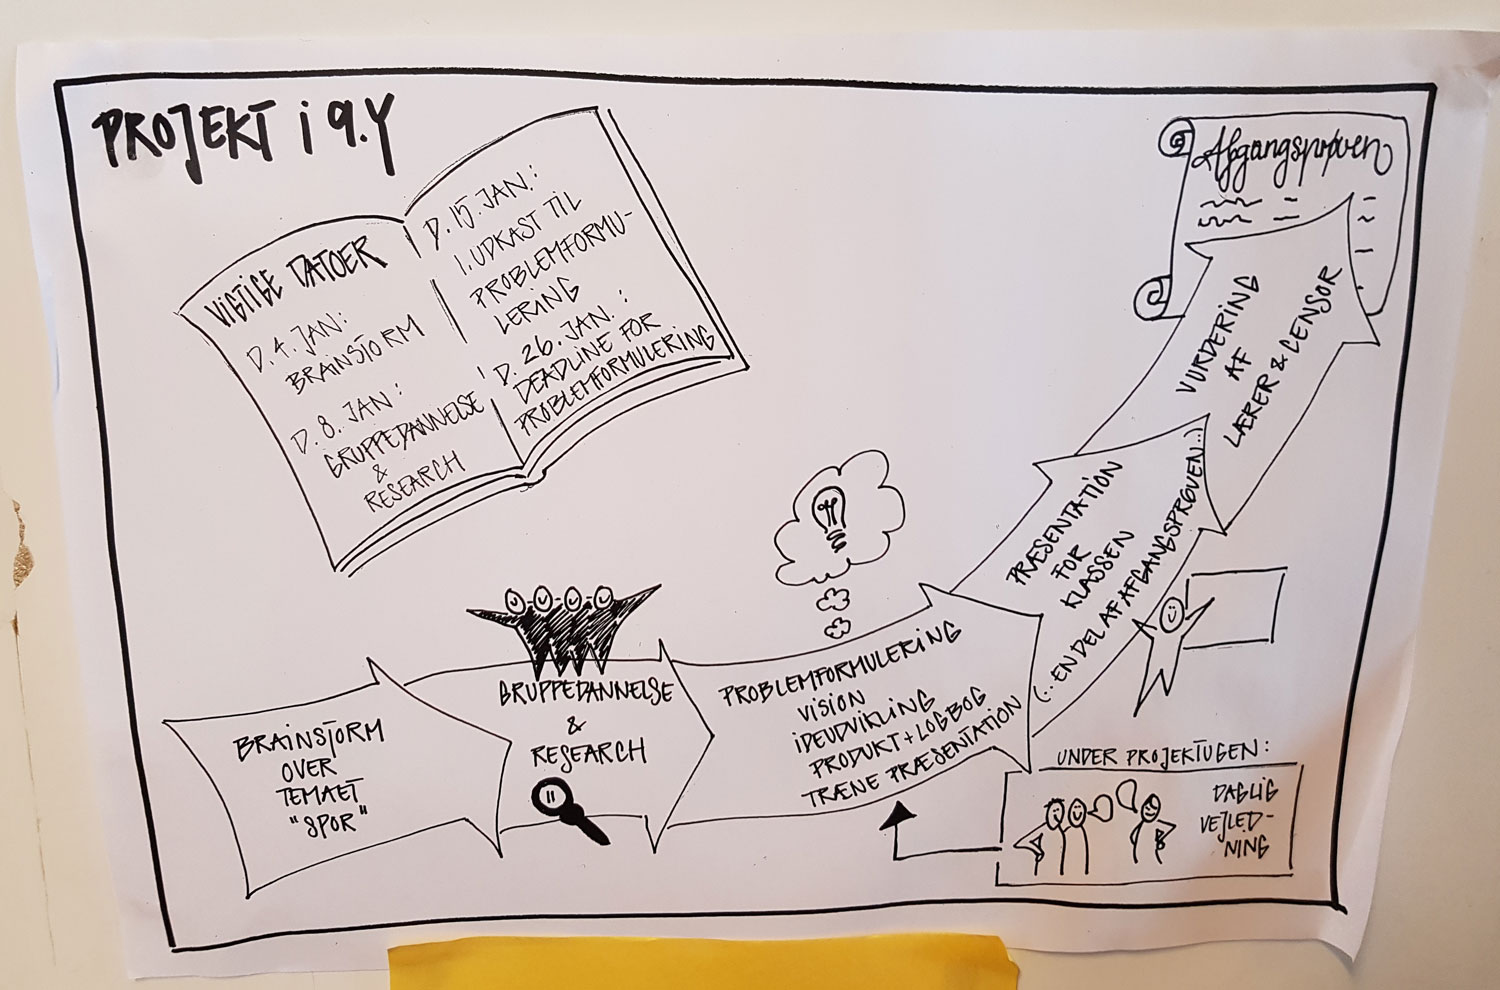 PROJEKT i 9.Y
VIGTIGE DATOER
D. 4. JAN:
BRAINSTORM
D. 8. JAN:
GRUPPEDANNELSE
&
RESEARCH
D. 15. JAN.:
1. UDKAST TIL
PROBLEMFORMU-
LERING
D. 26. JAN.:
DEADLINE FOR
PROBLEMFORMULERING
BRAINSTORM
OVER
TEMAET
"SPOR"
GRUPPEDANNELSE
&
RESEARCH
PROBLEMFORMULERING
VISION
IDEUDVIKLING
PRODUKT + LOGBOG
TRÆNE PRÆSENTATION
PRÆSENTATION
FOR
KLASSEN
(.. EN DEL AF AFGANGSPRØVEN..)
VURDERING
AF
LÆRER & CENSOR
Afgangsprøven
UNDER PROJEKTUGEN:
DAGLIG
VEJLED-
NING